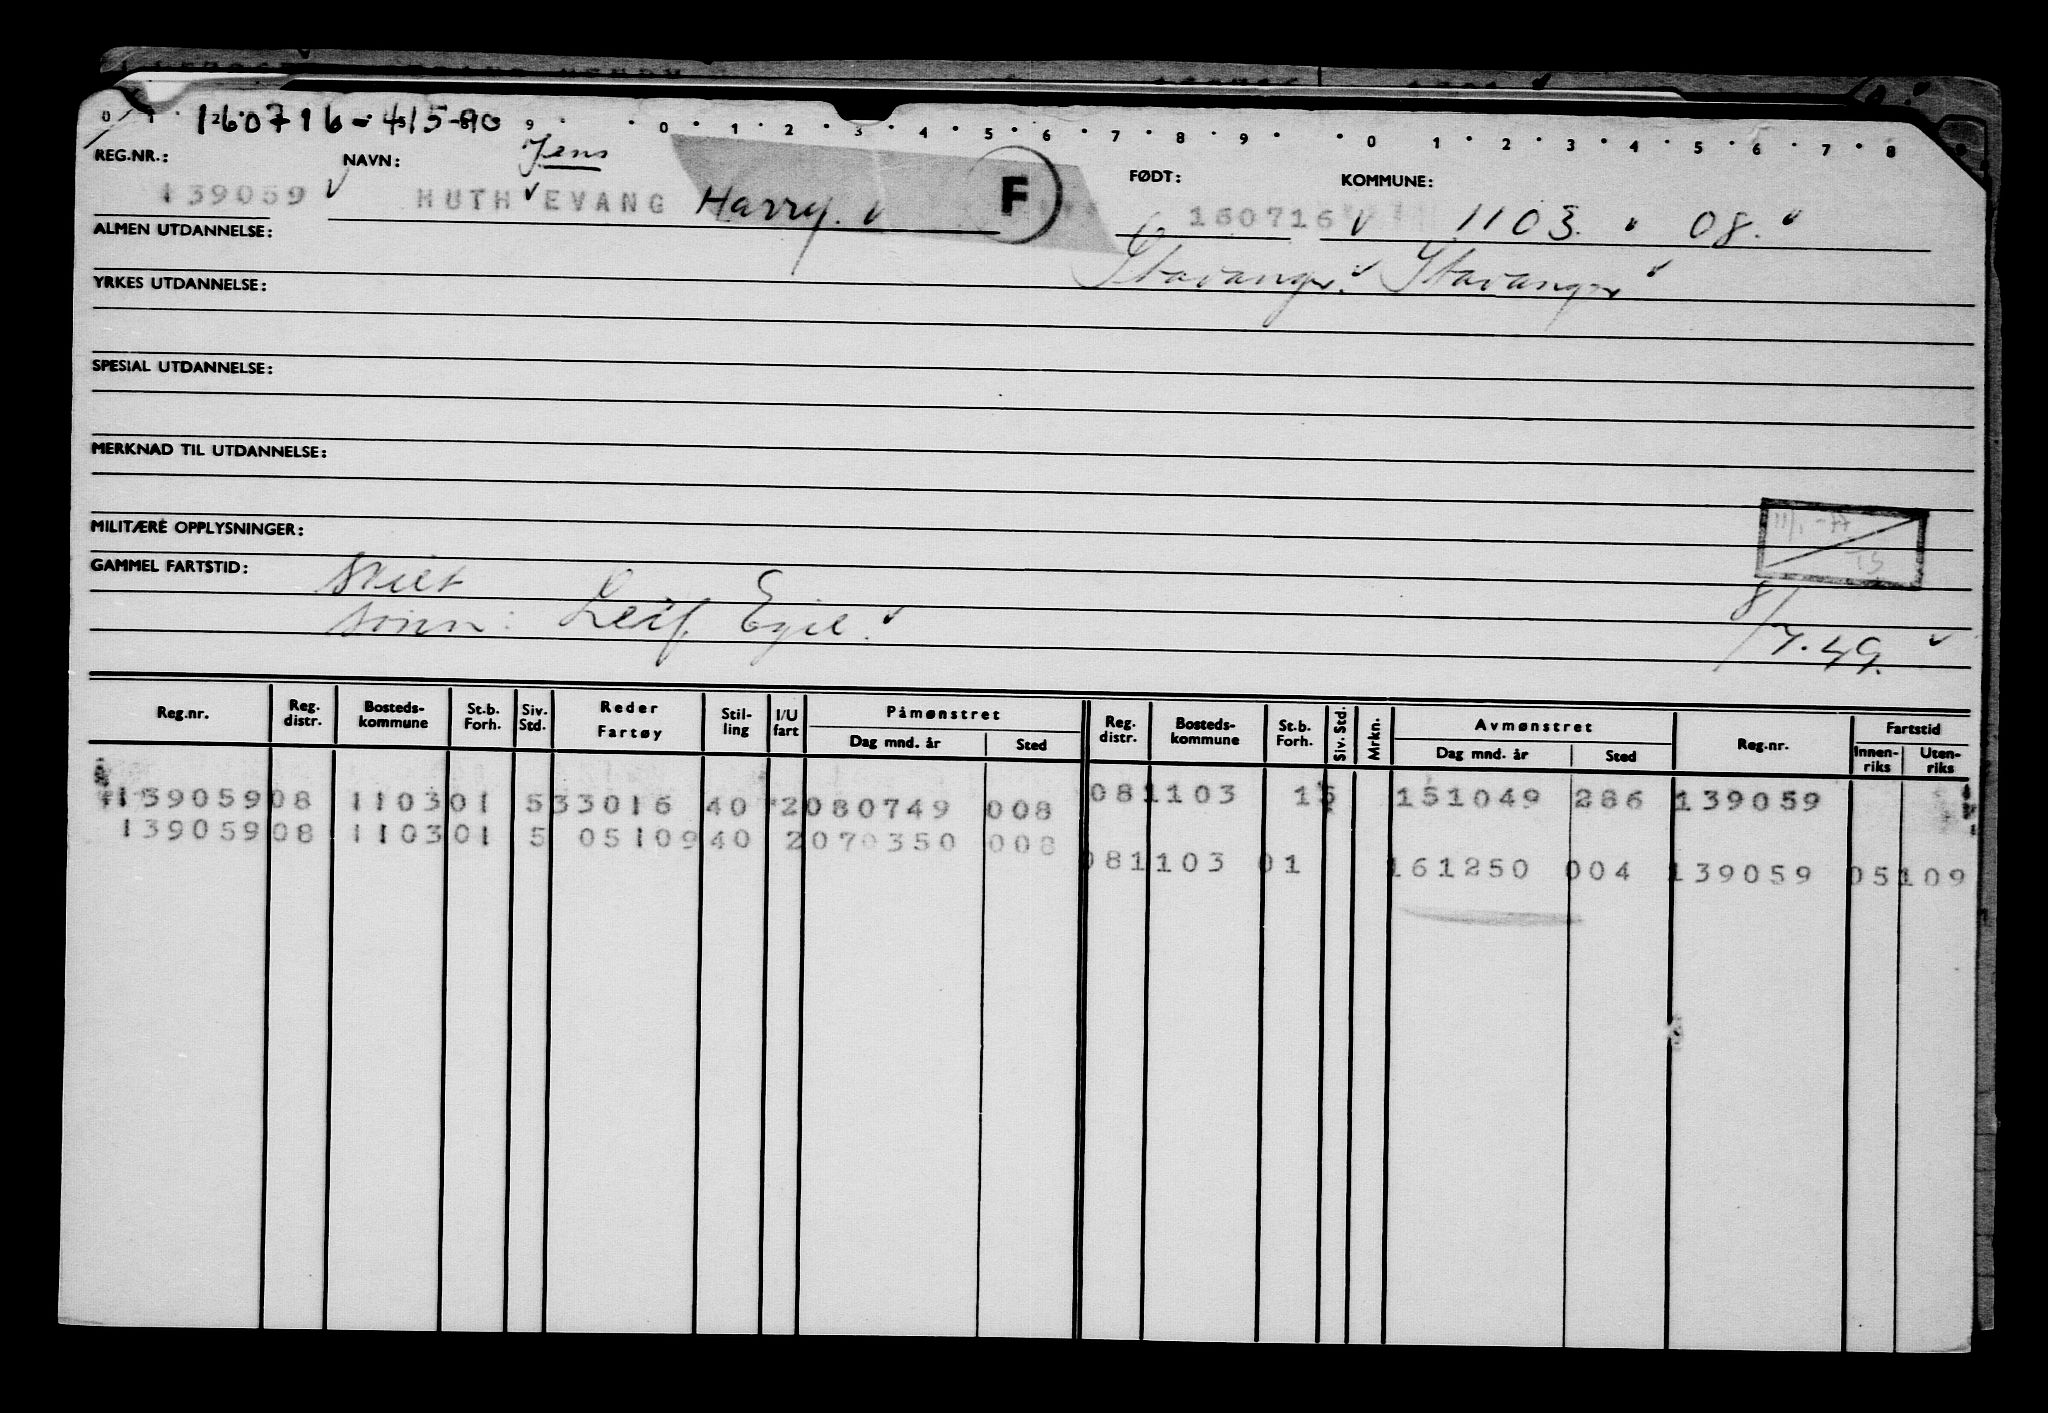 160716-41590
0 1 2 9 0 1 2 3 4 5 6 7 8 9 0 1 2 3 4 5 6 7 8
REG.NR.: NAVN: Jens FØDT: KOMMUNE:
139059 HUTH EVANG Harry. F 160716 1103. 08.
ALMEN UTDANNELSE:
Stavanger. Stavanger
YRKES UTDANNELSE:
SPESIAL UTDANNELSE:
MERKNAD TIL UTDANNELSE:
MILITÆRE OPPLYSNINGER: 11/1-77 TS
GAMMEL FARTSTID: skilt
sønn: Leif. Egil. 8/7.49.
Reg.nr. Reg. distr. Bosteds-kommune St.b. Forh. Siv. Std. Reder Fartøy Stil-ling I/U fart Påmønstret Dag mnd. år Sted Reg. distr. Bosteds-kommune St.b. Forh. Siv. Std. Mrkn. Avmønstret Dag mnd. år Sted Reg.nr. Fartstid Innen-riks Uten-riks
139059 08 1103 01 5 33016 40 2 080749 008 08 1103 15 151049 286 139059
139059 08 1103 01 5 05109 40 2 070350 008
08 1103 01 161250 004 139059 05109